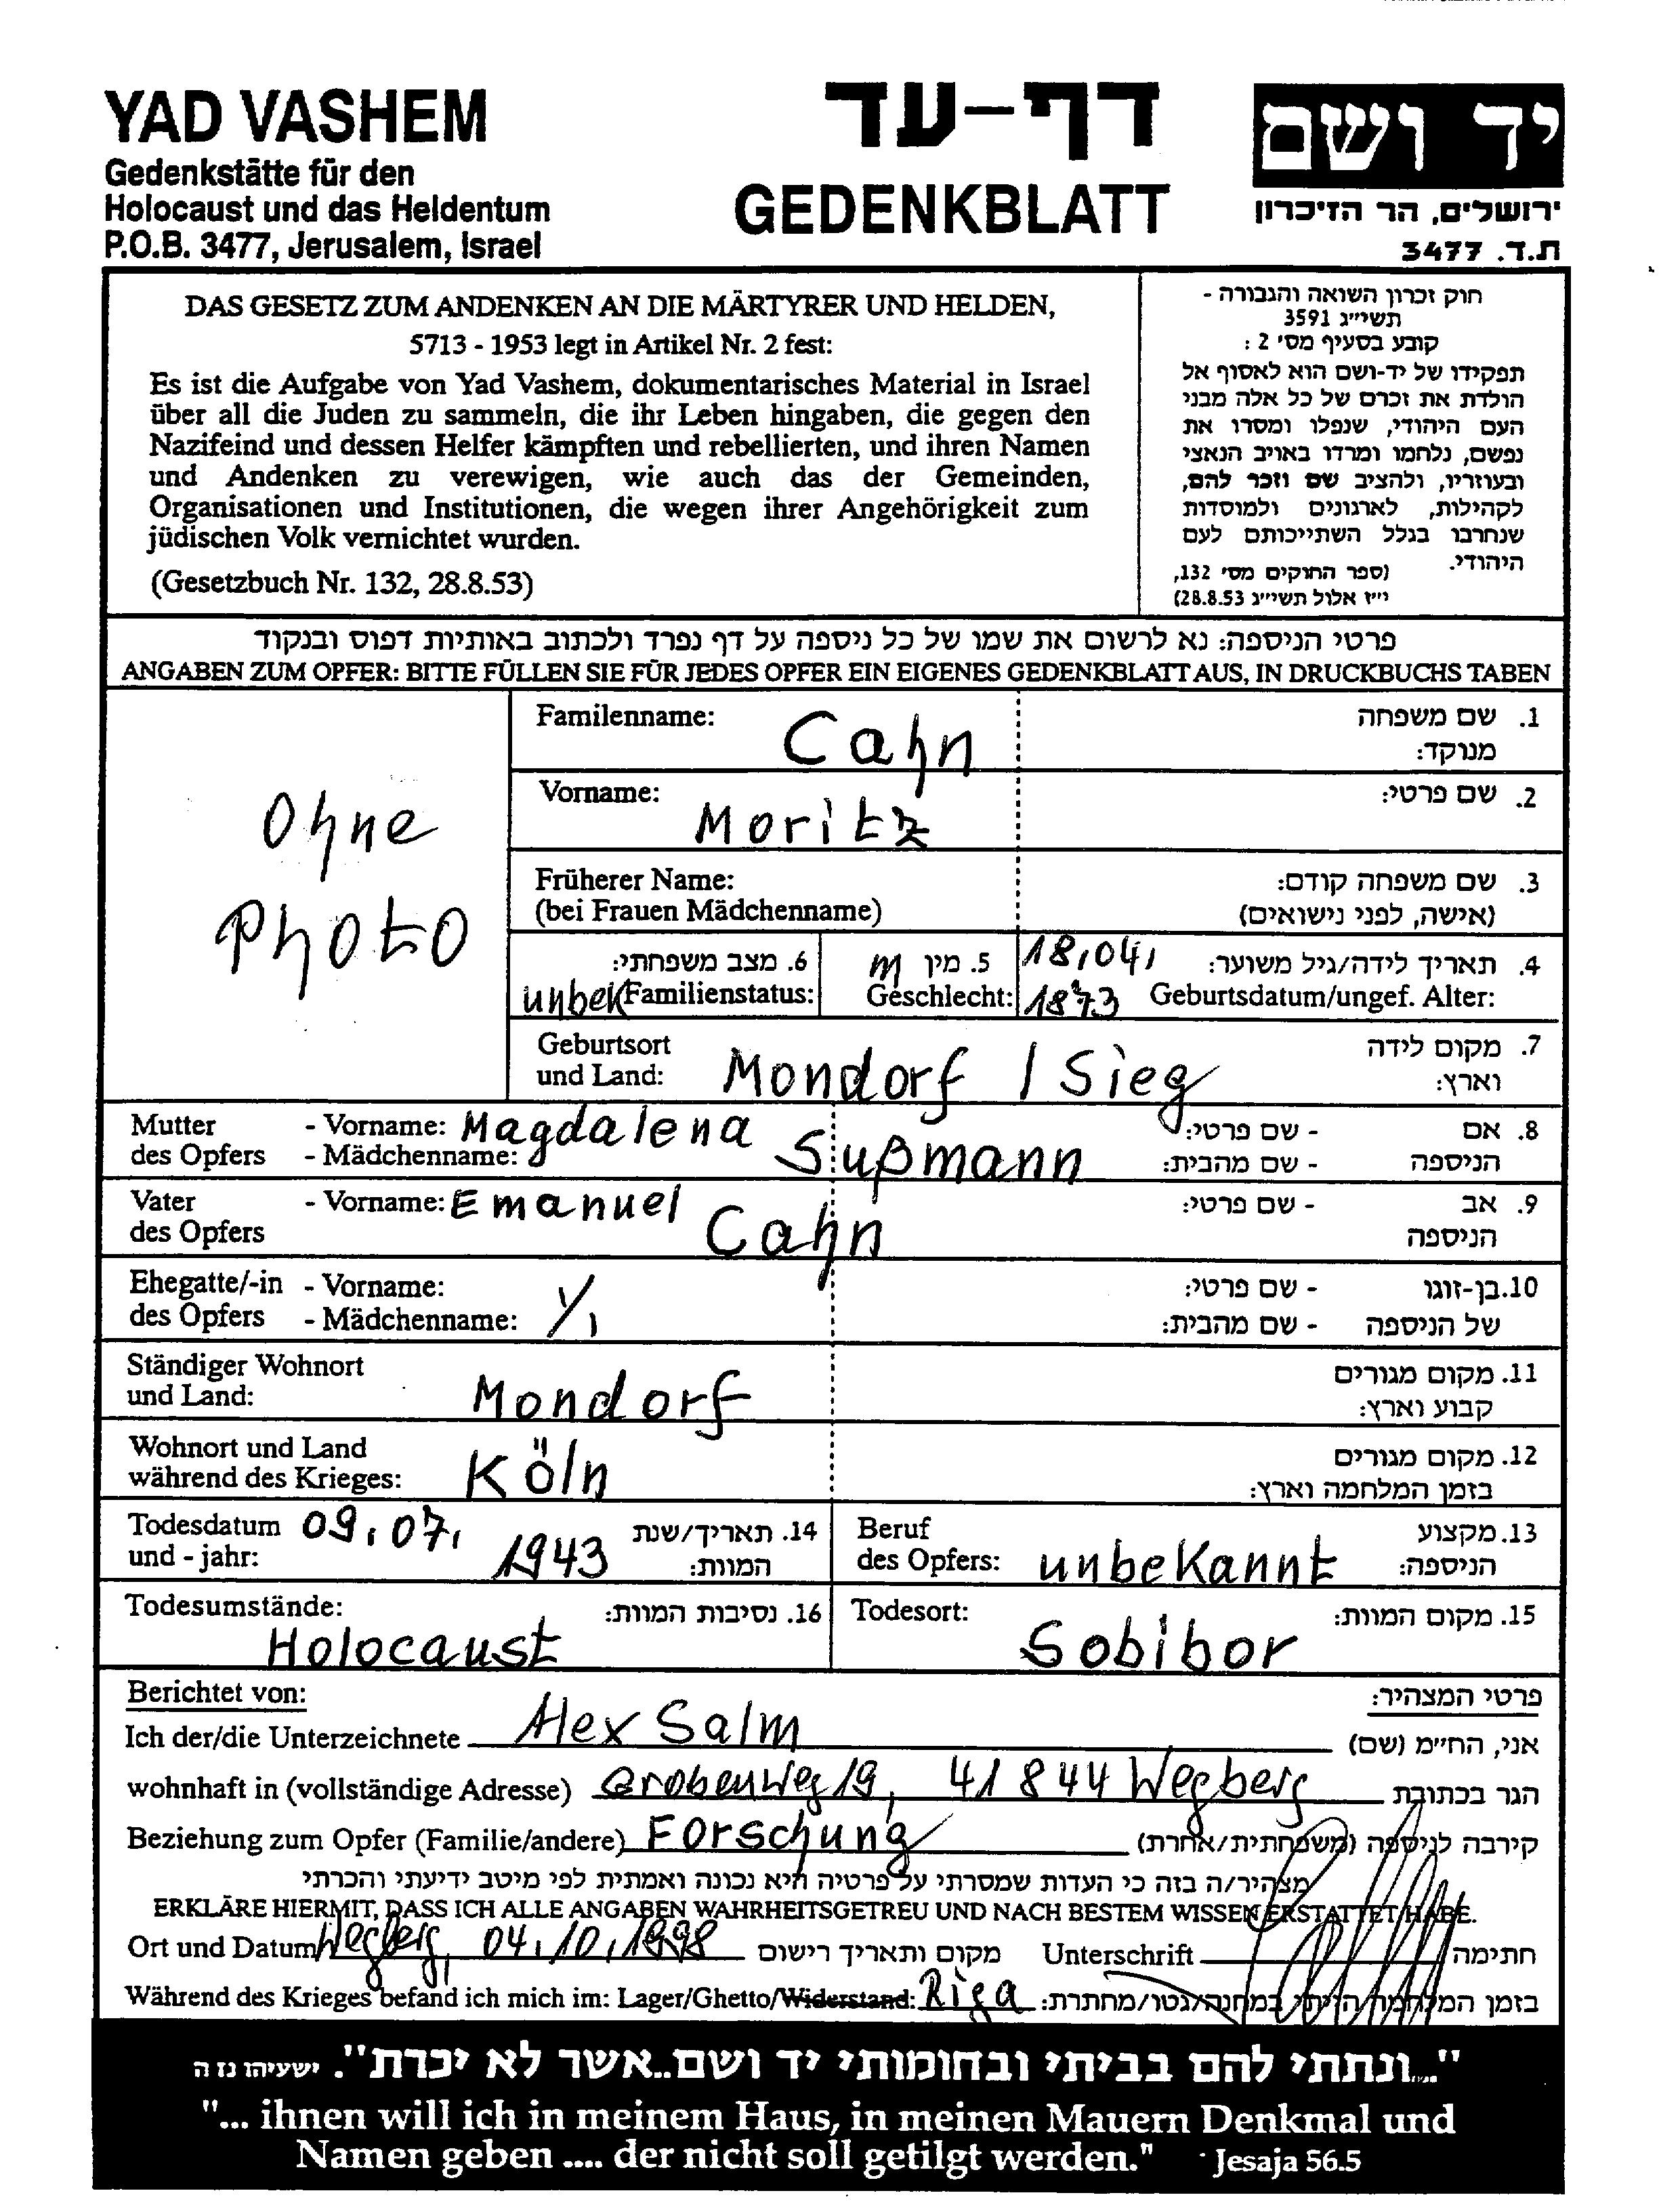 YAD VASHEM
Gedenkstätte für den
Holocaust und das Heldentum
P.O.B. 3477, Jerusalem, Israel
דף-עד
GEDENKBLATT
יד ושם
ירושלים, הר הזיכרון
ת.ד. 3477
DAS GESETZ ZUM ANDENKEN AN DIE MÄRTYRER UND HELDEN,
5713 - 1953 legt in Artikel Nr. 2 fest:
Es ist die Aufgabe von Yad Vashem, dokumentarisches Material in Israel
über all die Juden zu sammeln, die ihr Leben hingaben, die gegen den
Nazifeind und dessen Helfer kämpften und rebellierten, und ihren Namen
und Andenken zu verewigen, wie auch das der Gemeinden,
Organisationen und Institutionen, die wegen ihrer Angehörigkeit zum
jüdischen Volk vernichtet wurden.
(Gesetzbuch Nr. 132, 28.8.53)
חוק זכרון השואה והגבורה -
תשי״ג 3591
קובע בסעיף מס׳ 2 :
תפקידו של יד-ושם הוא לאסוף אל
הולדת את זכרם של כל אלה מבני
העם היהודי, שנפלו ומסרו את
נפשם, נלחמו ומרדו באויב הנאצי
ובעוזריו, ולהציב שם וזכר להם,
לקהילות, לארגונים ולמוסדות
שנחרבו בגלל השתייכותם לעם
היהודי.
(ספר החוקים מס׳ 132,
י״ז אלול תשי״ג 28.8.53)
פרטי הניספה: נא לרשום את שמו של כל ניספה על דף נפרד ולכתוב באותיות דפוס ובנקוד
ANGABEN ZUM OPFER: BITTE FÜLLEN SIE FÜR JEDES OPFER EIN EIGENES GEDENKBLATT AUS, IN DRUCKBUCHS TABEN
Ohne
Photo
Familenname: Cahn 1. שם משפחה
מנוקד:
Vorname: Moritz 2. שם פרטי:
Früherer Name: 3. שם משפחה קודם:
(bei Frauen Mädchenname) (אישה, לפני נישואים)
6. מצב משפחתי: 5. מין m 18.04. 4. תאריך לידה/גיל משוער:
unbek Familienstatus: Geschlecht: 1873 Geburtsdatum/ungef. Alter:
Geburtsort 7. מקום לידה
und Land: Mondorf / Sieg וארץ:
Mutter - Vorname: Magdalena 8. אם - שם פרטי:
des Opfers - Mädchenname: Sußmann הניספה - שם מהבית:
Vater - Vorname: Emanuel 9. אב - שם פרטי:
des Opfers Cahn הניספה
Ehegatte/-in - Vorname: 10. בן-זוגו - שם פרטי:
des Opfers - Mädchenname: של הניספה - שם מהבית:
Ständiger Wohnort 11. מקום מגורים
und Land: Mondorf קבוע וארץ:
Wohnort und Land 12. מקום מגורים
während des Krieges: Köln בזמן המלחמה וארץ:
Todesdatum 09.07. 14. תאריך/שנת Beruf 13. מקצוע
und - jahr: 1943 המוות: des Opfers: unbekannt הניספה:
Todesumstände: 16. נסיבות המוות: Todesort: 15. מקום המוות:
Holocaust Sobibor
Berichtet von: פרטי המצהיר:
Ich der/die Unterzeichnete Alex Salm אני, הח״מ (שם)
wohnhaft in (vollständige Adresse) Grobenweg 19, 41844 Wegberg הגר בכתובת
Beziehung zum Opfer (Familie/andere) Forschung קירבה לניספה (משפחתית/אחרת)
מצהיר/ה בזה כי העדות שמסרתי על פרטיה היא נכונה ואמתית לפי מיטב ידיעתי והכרתי
ERKLÄRE HIERMIT, DASS ICH ALLE ANGABEN WAHRHEITSGETREU UND NACH BESTEM WISSEN ERSTATTET HABE.
Ort und Datum Wegberg, 04.10.1998 מקום ותאריך רישום Unterschrift חתימה
Während des Krieges befand ich mich im: Lager/Ghetto/Widerstand: Riga בזמן המלחמה הייתי במחנה/גטו/מחתרת:
"...ונתתי להם בביתי ובחומותי יד ושם..אשר לא יכרת". ישעיהו נז ה
"... ihnen will ich in meinem Haus, in meinen Mauern Denkmal und
Namen geben .... der nicht soll getilgt werden." Jesaja 56.5